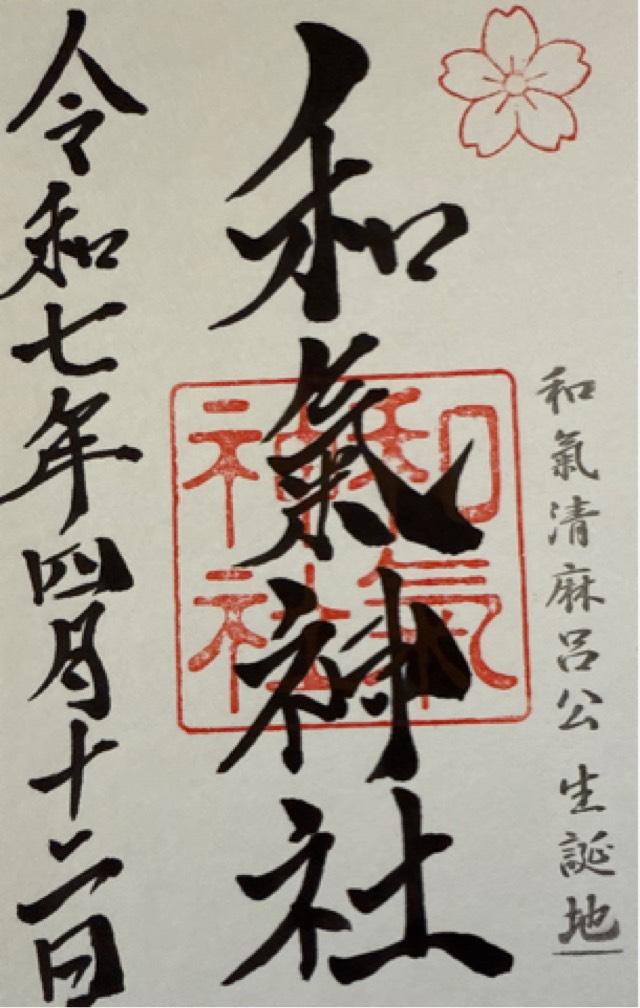 和氣清麻呂公 生誕地
和氣神社
和氣
神社
令和七年四月十二日